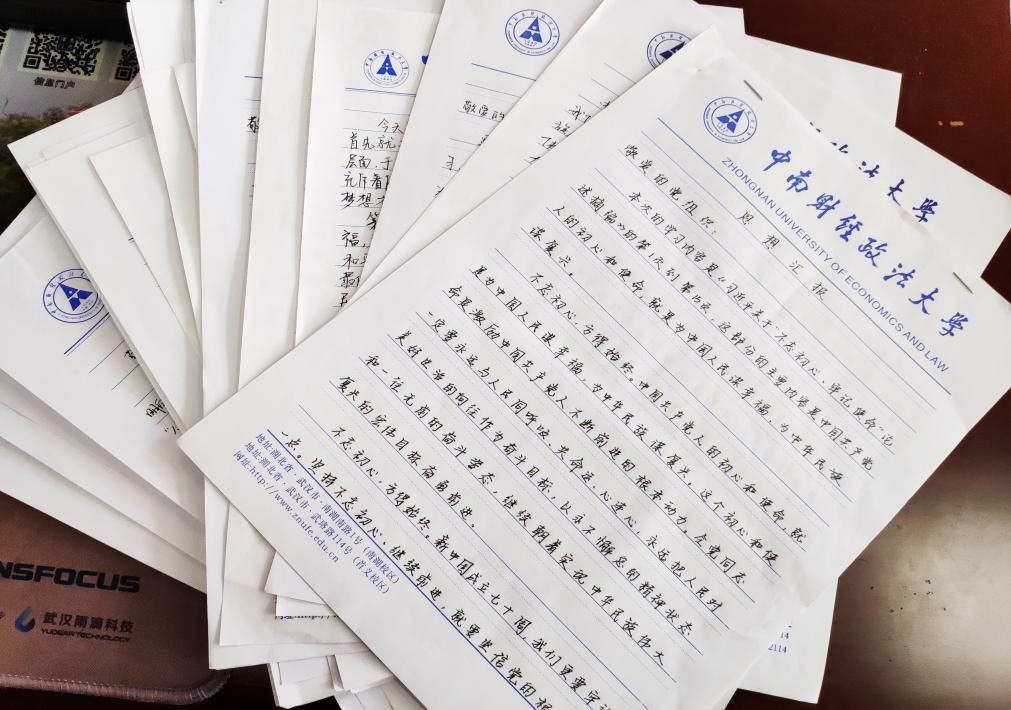 中南财经政法大学
ZHONGNAN UNIVERSITY OF ECONOMICS AND LAW
思想汇报
敬爱的党组织：
本次的学习内容是《习近平关于“不忘初心、牢记使命”论
述摘编》的第1页到第15页，这部分的主要内容是中国共产党
人的初心和使命，就是为中国人民谋幸福，为中华民族
谋复兴。
不忘初心，方得始终。中国共产党人的初心和使命，就
是为中国人民谋幸福，为中华民族谋复兴。这个初心和使
命是激励中国共产党人不断前进的根本动力。全党同志
一定要永远与人民同呼吸、共命运、心连心，永远把人民对
美好生活的向往作为奋斗目标，以永不懈怠的精神状态
和一往无前的奋斗姿态，继续朝着实现中华民族伟大
复兴的宏伟目标奋勇前进。
不忘初心，方得始终。新中国成立七十周，我们更要牢记
一点。坚持不忘初心、继续前进，就要坚信党的根
地址:湖北省·武汉市·南湖南路1号（南湖校区）
地址:湖北省·武汉市·武珞路114号（首义校区）
网址:http://www.znufe.edu.cn
政法大学
敬爱的
今天
首先就
层面，于
充斥着
梦想
福，
和
信息门户
NSFOCUS
武汉雨滴科技
YUDEAR TECHNOLOGY